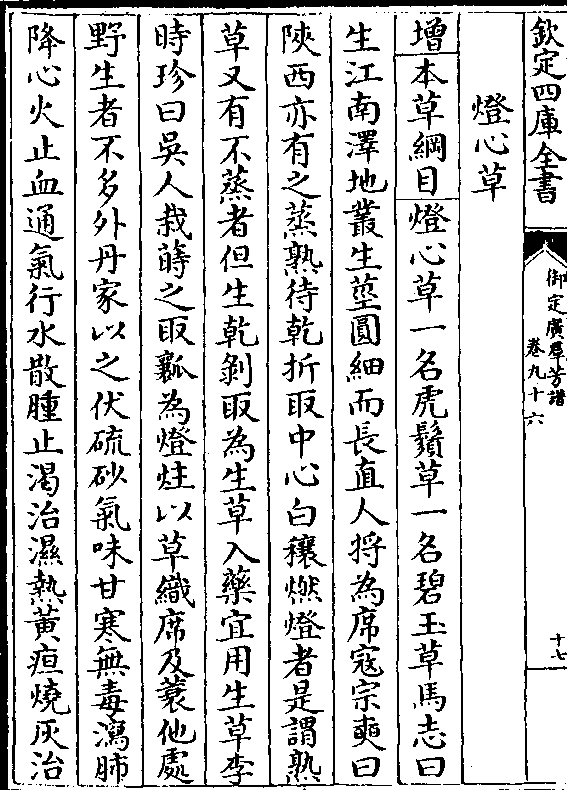 欽定四庫全書
御定廣羣芳譜
卷九十六
十七
燈心草
增本草綱目燈心草一名虎鬚草一名碧玉草馬志曰
生江南澤地叢生莖圓細而長直人將為席寇宗奭曰
陜西亦有之蒸熟待乾折取中心白穰燃燈者是謂熟
草又有不蒸者但生乾剝取為生草入藥宜用生草李
時珍曰吳人栽蒔之取瓤為燈炷以草織席及蓑他處
野生者不多外丹家以之伏硫砂氣味甘寒無毒瀉肺
降心火止血通氣行水散腫止渴治濕熱黃疸燒灰治